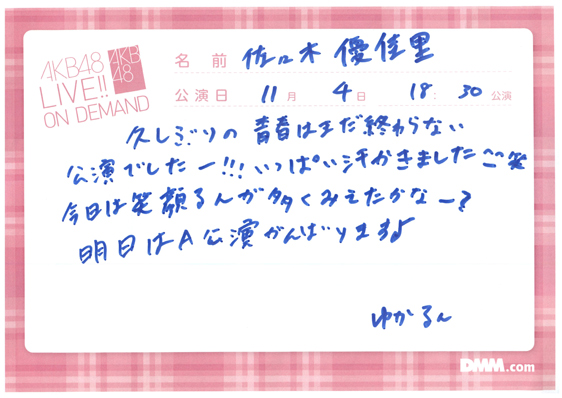 AKB48
LIVE!!
ON DEMAND
AKB
48
名前 佐々木優佳里
公演日 11月 4日 18:30公演
久しぶりの青春はまだ終わらない
公演でしたー!!!いっぱい汗かきました^^笑
今日は笑顔るんが多くみえたかなー?
明日はA公演がんばります♪
ゆかるん
DMM.com